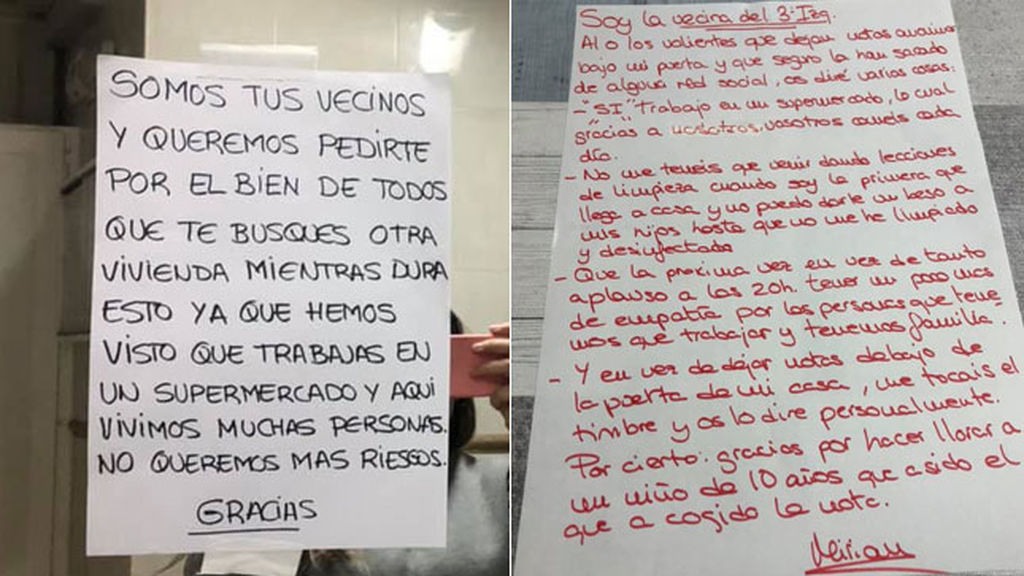 SOMOS TUS VECINOS
Y QUEREMOS PEDIRTE
POR EL BIEN DE TODOS
QUE TE BUSQUES OTRA
VIVIENDA MIENTRAS DURA
ESTO YA QUE HEMOS
VISTO QUE TRABAJAS EN
UN SUPERMERCADO Y AQUI
VIVIMOS MUCHAS PERSONAS.
NO QUEREMOS MAS RIESGOS.
GRACIAS
Soy la vecina del 3-Izq.
Al o los valientes que dejan notas
bajo mi puerta y que seguro la han sacado
de alguna red social, os diré varias cosas:
- "SI" Trabajo en un supermercado, lo cual
gracias a "nosotros", vosotros coméis cada
día.
- No me teneis que venir dando lecciones
de limpieza cuando soy la primera que
llega a casa y no puedo darle un beso a
mis hijos hasta que no me he limpiado
y desinfectado
- Que la proxima vez en vez de tanto
aplauso a las 20h. tener un poco mas
de empatía por las personas que tene-
mos que trabajar y tenemos familia.
- Y en vez de dejar notas debajo de
la puerta de mi casa, me tocais el
timbre y os lo dire personalmente.
Por cierto: gracias por hacer llorar a
un niño de 10 años que a sido el
que a cogido la nota.
Mirian